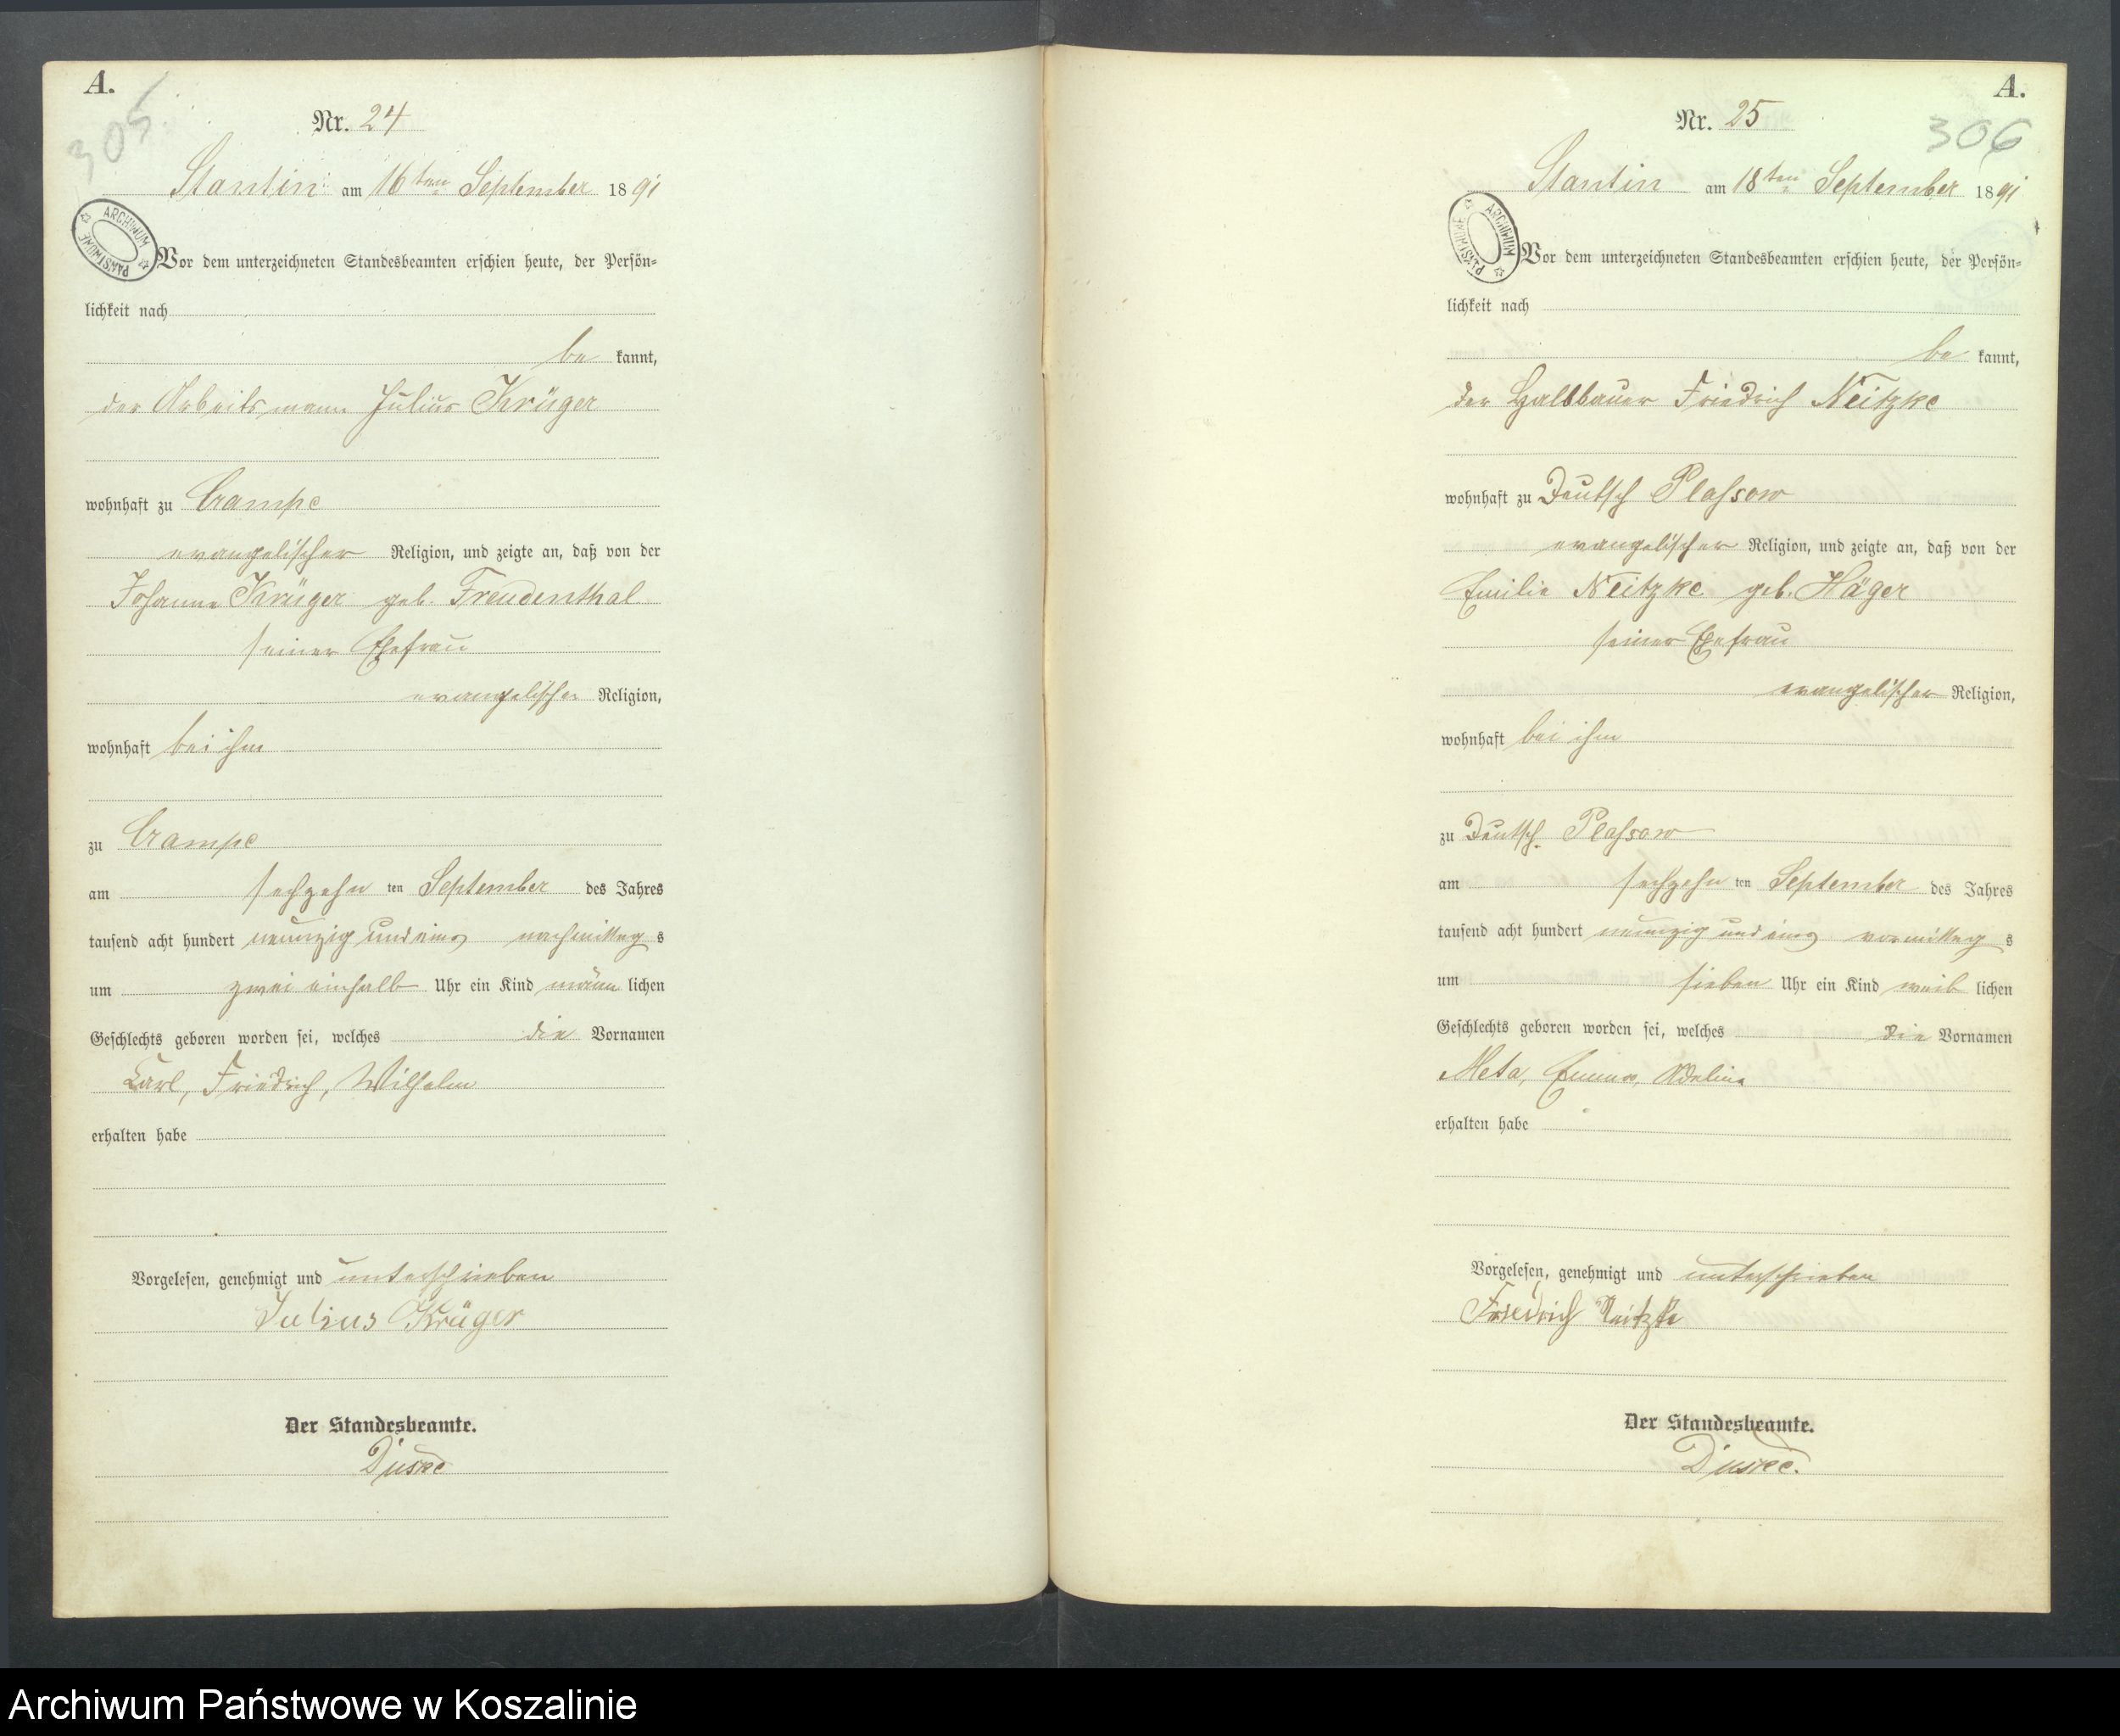 A.
305.
Nr. 24
Stantin am 16ten September 1891
ARCHIWUM PAŃSTWOWE
Vor dem unterzeichneten Standesbeamten erschien heute, der Persön-
lichkeit nach
be kannt,
der Arbeitsmann Julius Krüger
wohnhaft zu Crampe
evangelischer Religion, und zeigte an, daß von der
Johanne Krüger geb. Freudenthal
seiner Ehefrau
evangelischer Religion,
wohnhaft bei ihm
zu Crampe
am sechzehn ten September des Jahres
tausend acht hundert neunzig und eins nachmittag s
um zwei einhalb Uhr ein Kind männ lichen
Geschlechts geboren worden sei, welches die Vornamen
Carl, Friedrich, Wilhelm
erhalten habe
Vorgelesen, genehmigt und unterschrieben
Julius Krüger
Der Standesbeamte.
A.
306
Nr. 25
Stantin am 18ten September 1891
ARCHIWUM PAŃSTWOWE
Vor dem unterzeichneten Standesbeamten erschien heute, der Persön-
lichkeit nach
be kannt,
der Halbbauer Friedrich Neitzke
wohnhaft zu Deutsch Plassow
evangelischer Religion, und zeigte an, daß von der
Emilie Neitzke geb. Häger
seiner Ehefrau
evangelischer Religion,
wohnhaft bei ihm
zu Deutsch Plassow
am sechzehn ten September des Jahres
tausend acht hundert neunzig und eins vormittag s
um sieben Uhr ein Kind weib lichen
Geschlechts geboren worden sei, welches die Vornamen
Meta, Emma, Adeline
erhalten habe
Vorgelesen, genehmigt und unterschrieben
Friedrich Neitzke
Der Standesbeamte.
Archiwum Państwowe w Koszalinie